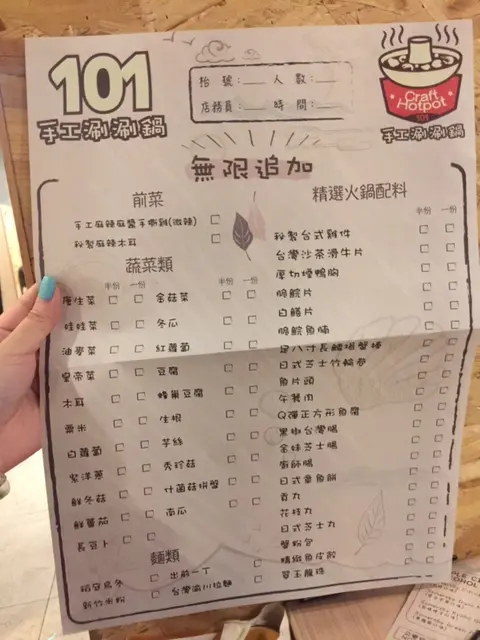 101
手工涮涮鍋
枱號：___ 人數：___
店務員：___ 時間：___
Craft
Hotpot
101
手工涮涮鍋
無限追加
前菜
手工麻辣麻醬手撕雞(微辣)
秘製麻辣木耳
蔬菜類
半份 一份 半份 一份
唐生菜 金菇菜
娃娃菜 冬瓜
油麥菜 紅蘿蔔
皇帝菜 豆腐
木耳 蜂巢豆腐
粟米 生根
白蘿蔔 芋絲
紫洋蔥 秀珍菇
鮮冬菇 什菌菇拼盤
鮮番茄 南瓜
長豆卜
麵類
稻庭烏冬 出前一丁
新竹米粉 台灣
精選火鍋配料
半份 一份
秘製台式雞件
台灣沙茶滑牛片
厚切燻鴨胸
脆鯇片
白鱔片
脆鯇魚腩
足八寸長鱗場蟹棒
日式芝士竹輪卷
魚片頭
午餐肉
Q彈正方形魚腐
黑椒台灣腸
金妹芝士腸
廚師腸
日式章魚餅
貢丸
花枝丸
日式芝士丸
蟹粉包
精緻魚皮餃
翠玉龍珠